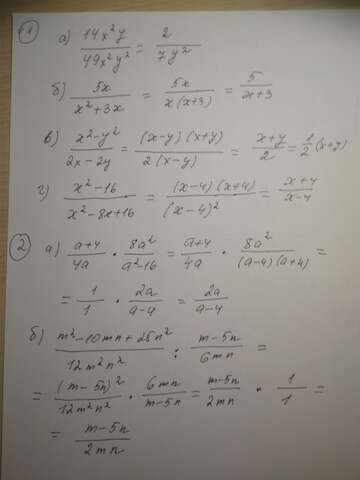 1 а) 14x²y / 49x²y² = 2 / 7y²
б) 5x / x²+3x = 5x / x(x+3) = 5 / x+3
в) x²-y² / 2x-2y = (x-y)(x+y) / 2(x-y) = x+y / 2 = 1/2 (x+y)
г) x²-16 / x²-8x+16 = (x-4)(x+4) / (x-4)² = x+4 / x-4
2 а) a+4 / 4a · 8a² / a²-16 = a+4 / 4a · 8a² / (a-4)(a+4) =
= 1/1 · 2a / a-4 = 2a / a-4
б) m²-10mn+25n² / 12m²n² : m-5n / 6mn =
= (m-5n)² / 12m²n² · 6mn / m-5n = m-5n / 2mn · 1/1 =
= m-5n / 2mn